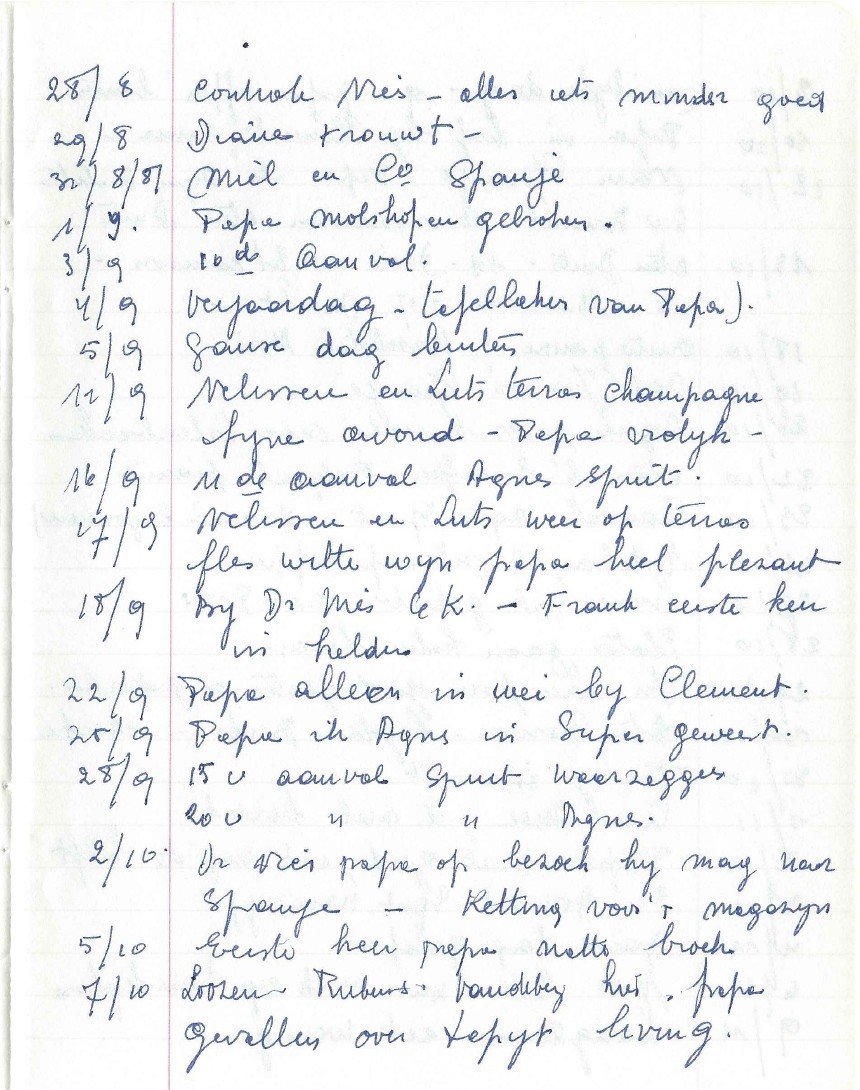 28/8 Controle Nies – alles iets minder goed
29/8 Diane trouwt –
31/8/81 Miel en Co Spanje
1/9. Papa molshopen gebroken.
3/9 10de Aanval.
4/9 Verjaardag – tafelbeker van Papa).
5/9 Ganse dag buiten
12/9 Nelissen en Luts terras champagne
fyne avond – Papa vrolyk –
16/9 11de aanval Agnes spuit.
17/9 Nelissen en Luts weer op terras
fles witte wyn papa heel plezant
18/9 By Dr Nies – Frank eerste keer
in kelder
22/9 Papa alleen in wei by Clement.
25/9 Papa ik Agnes in Super geweest.
28/9 15 u aanval Spuit Waarzegger
20 u " " Agnes.
2/10. Dr Nies papa op bezoek hy mag naar
Spanje – Ketting voor 't magazyn
5/10 Eerste keer papa natte broek
7/10 Loozen – Rubens – Vandebey huis. papa
Gevallen over tapyt living.